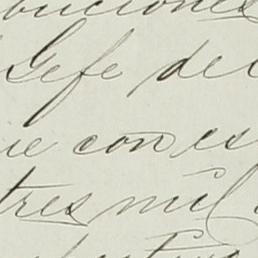 buciones
Gefe del
ue con es
tres mil